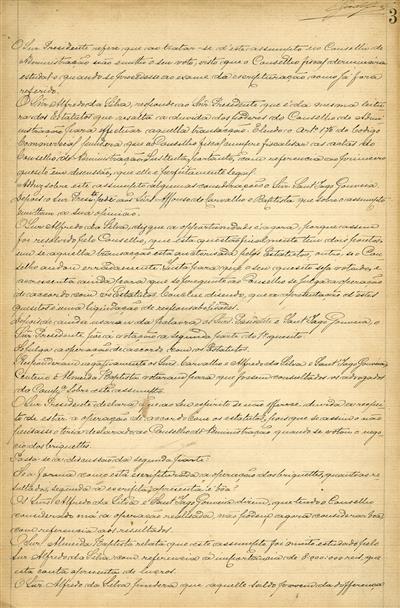 3
O Snr Presidente refere que ao tratar-se d'este assumpto no Conselho de
Administração não emittiu o seu voto, visto que o Conselho fiscal
estudal-o quando se procedesse ao exame da escripturação como já fora
referido.
O Snr Alfredo da Silva, responde ao Snr Presidente que é da mesma leitu-
ra dos Estatutos que resalta a duvida dos poderes do Conselho de Admi-
nistração para effectuar aquella transacção. Lendo o Artº 176 do Codigo
Commercial que o Conselho fiscal cumpre fiscalisar os actos do
Conselho de Administração portanto, com referencia ao primeiro
quesito em discussão, que elle é perfeitamente legal.
sobre este assumpto algumas considerações o Snr Sant'Iago Gouveia.
Depois o Snr Presidte pede aos Snrs Affonso de Carvalho e Baptista que sobre o assumpto
emittam a sua opinião.
O Snr Alfredo da Silva, diz que a opportunidade é agora, porque assim
foi resolvido pelo Conselho, que esta questão tem dois pontos,
um se aquella transacção está auctorisada pelos Estatutos, outro, se o Con-
selho andou erradamente. para que o seu quesito seja votado, e
accrescenta ainda para que se pergunte ao Conselho se julga a operação
de accordo com os Estatutos. Conclue dizendo, que a apresentação de estes
quesitos é uma liquidação de responsabilidades.
ainda usaram da palavra os Snrs Presidente e Sant'Iago Gouveia, o
Snr Presidente põe á votação a segunda parte do 1º quesito.
Se julga a operação de accordo com os Estatutos.
Responderam negativamente os Snrs Carvalho e Alfredo da Silva e Sant'Iago Gouveia
Centeno e Almeida Baptista votaram para que fossem consultados os advogados
da Compª sobre este assumpto.
O Snr Presidente declara que ao seu espirito se não offerece duvida a respei-
to de estar a operação de accordo com os estatutos, porque se assim o não
pensasse o teria declarado ao Conselho de Administração quando se votou o nego-
cio dos briquettes.
Passa-se á discussão da segunda parte.
Se a forma como está escripturada a operação dos briquettes, quanto ao re-
sultado, segundo a escripta apresenta é boa?
Os Snrs Alfredo da Silva e Sant'Iago Gouveia dizem, que tendo o Conselho
considerado má a operação realisada, não podia agora considerar boa
com referencia aos resultados.
O Snr Almeida Baptista relata que este assumpto foi muito estudado pelo
Snr Alfredo da Silva com referencia á importancia de 8:000:000 reis, que
esta conta apresenta de lucros.
O Snr Alfredo da Silva pondera que aquelle saldo provem da differença